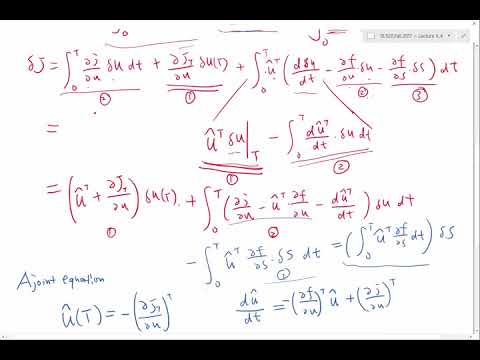 16.920 Fall 2017 - Lecture 4.4
δJ = ∫₀ᵀ ∂j/∂u δu dt + ∂J_T/∂u δu(T) + ∫₀ᵀ ûᵀ (dδu/dt − ∂f/∂u δu − ∂f/∂s δs) dT
② ① ② ③
= ûᵀ δu|_T − ∫₀ᵀ dûᵀ/dt · δu dt
① ②
= (ûᵀ + ∂J_T/∂u) δu(T) + ∫₀ᵀ (∂j/∂u − ûᵀ ∂f/∂u − dûᵀ/dt) δu dt
① ②
− ∫₀ᵀ ûᵀ ∂f/∂s · δs dt = (∫₀ᵀ ûᵀ ∂f/∂s dt) δs
Ajoint equation
û(T) = −(∂J_T/∂u)ᵀ dû/dt = −(∂f/∂u)ᵀ û + (∂j/∂u)ᵀ